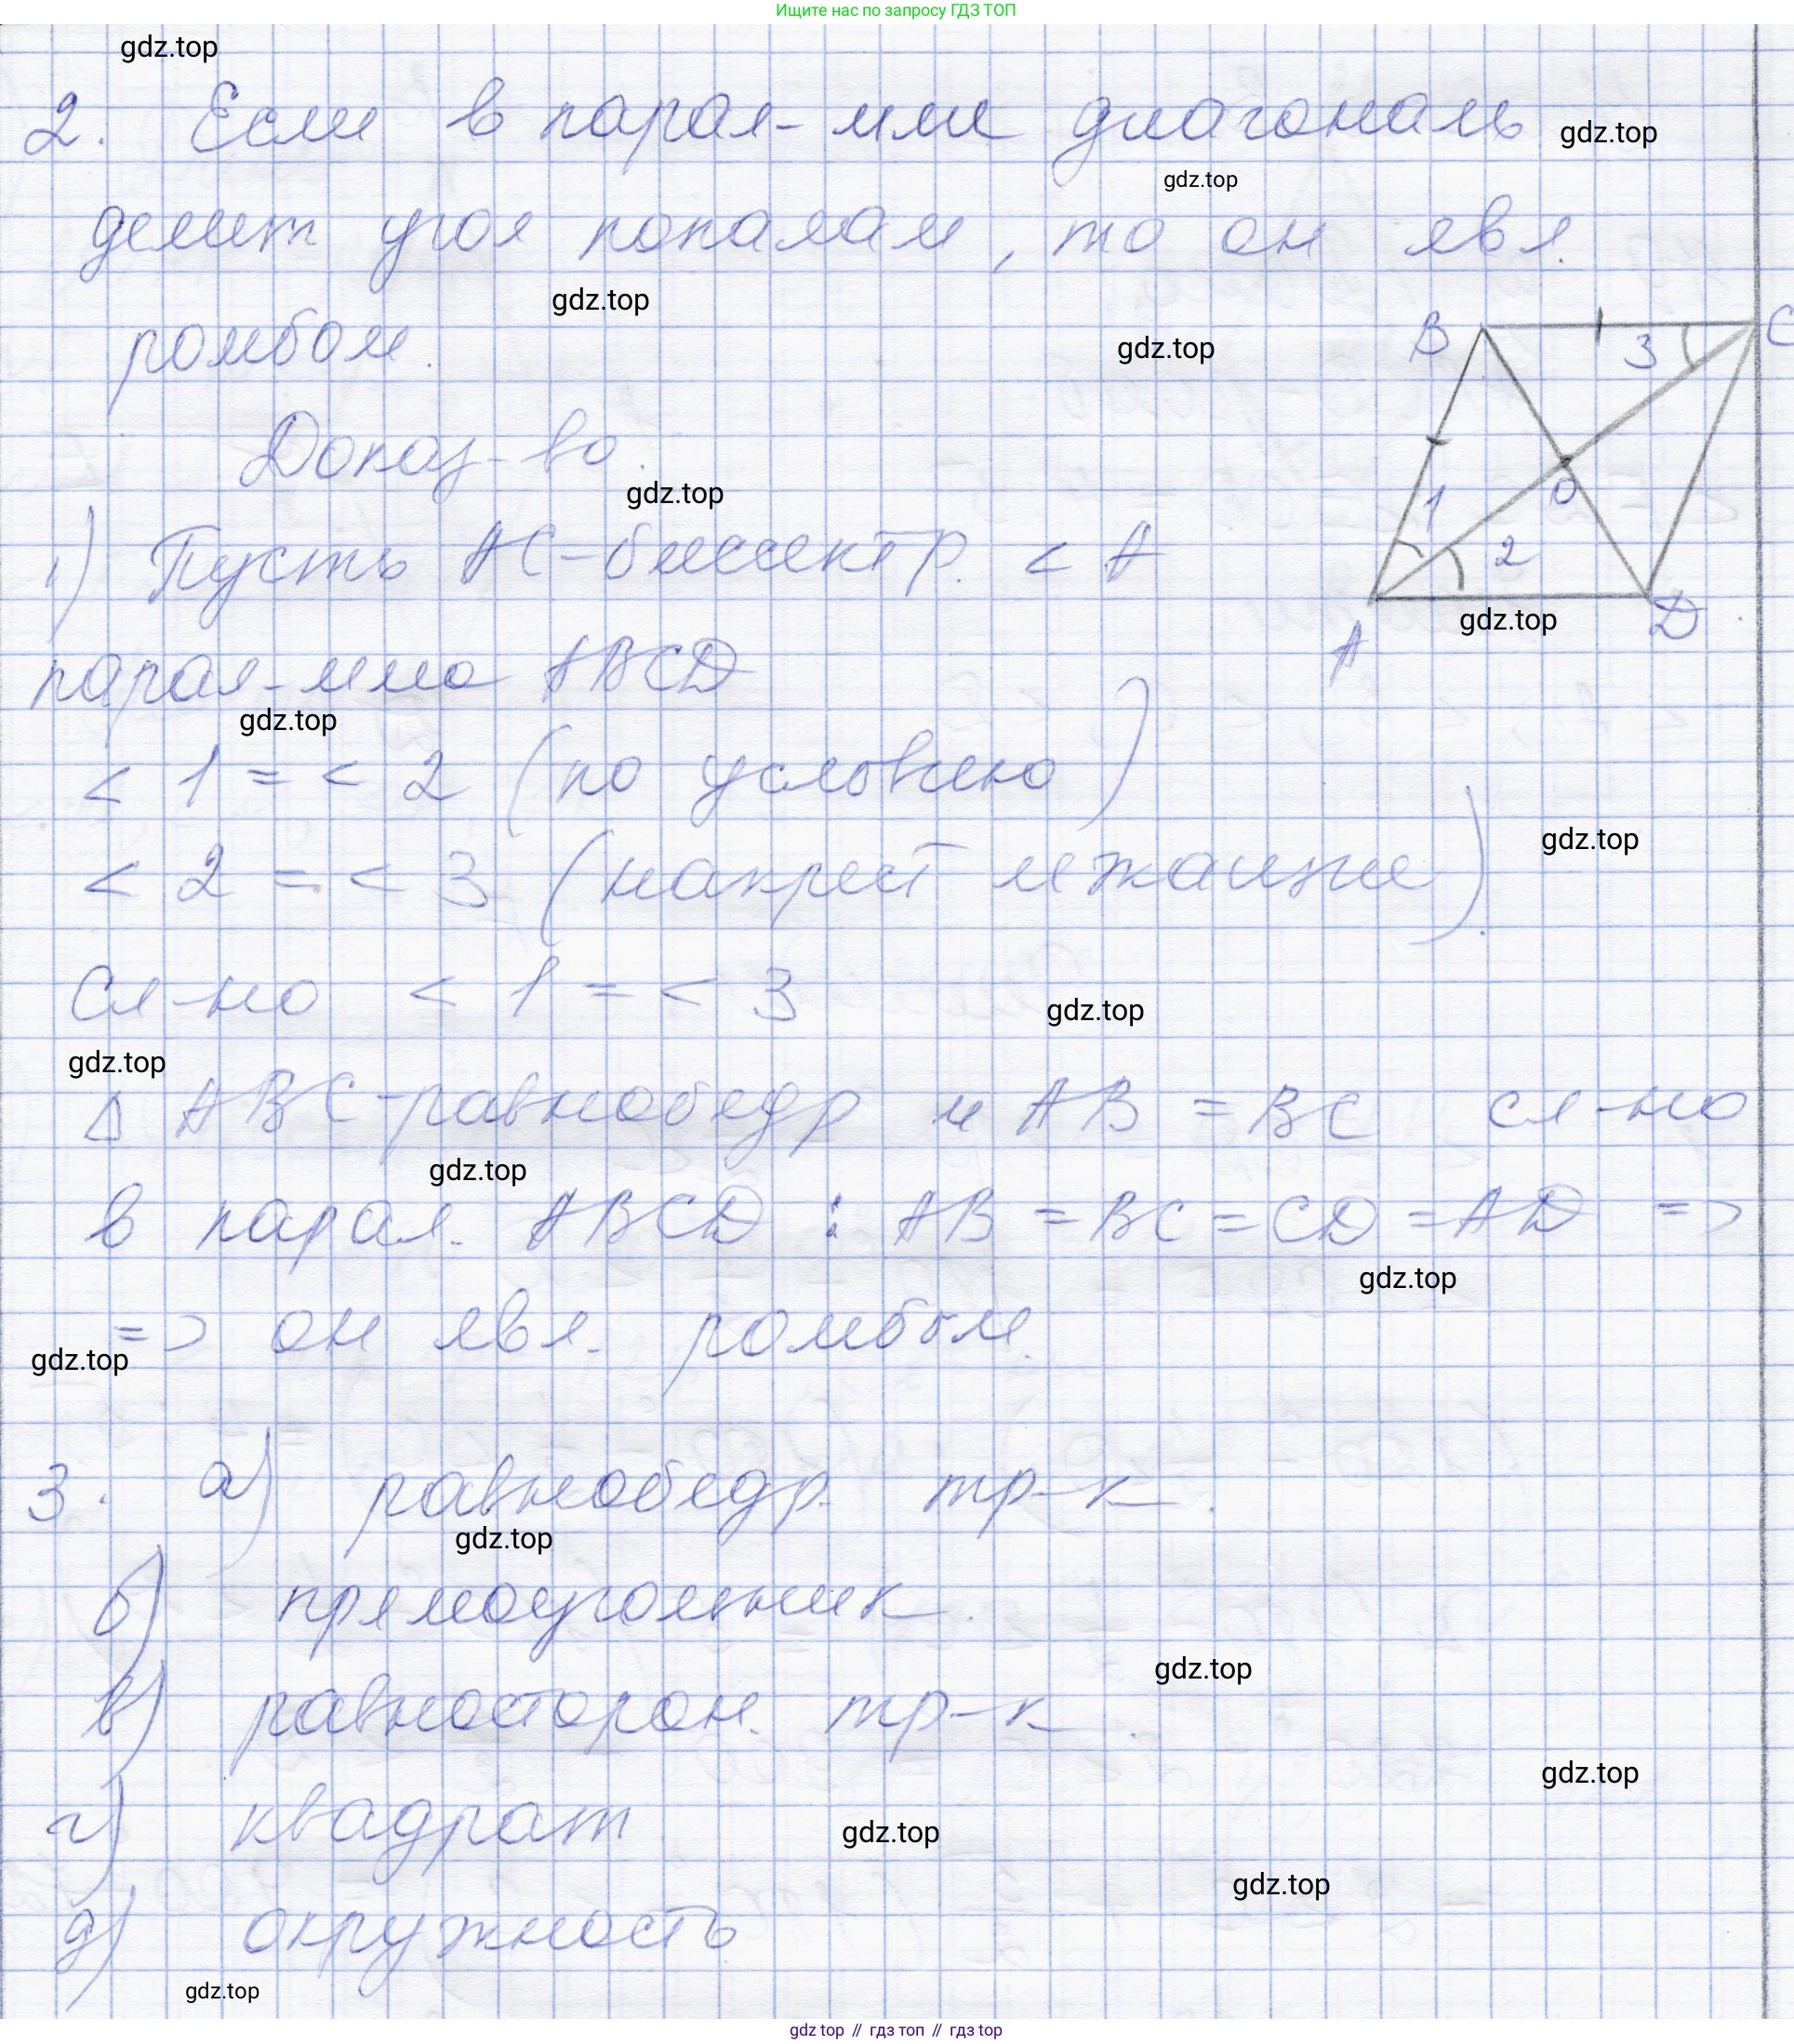 Ищите нас по запросу ГДЗ ТОП
gdz.top
2. Если в парал-мме диагональ
gdz.top
gdz.top
делит угол пополам, то он явл.
gdz.top
ромбом.
gdz.top
B
3
C
Доказ-во.
gdz.top
O
1
2
1) Пусть AC-биссектр. < A
gdz.top
A
D
парал-мма ABCD
gdz.top
< 1 = < 2 (по условию)
gdz.top
< 2 = < 3 (накрест лежащие).
Сл-но < 1 = < 3
gdz.top
gdz.top
Δ ABC-равнобедр и AB = BC сл-но
gdz.top
в парал. ABCD : AB = BC = CD = AD =>
gdz.top
=> он явл. ромбом.
gdz.top
3. а) равнобедр. тр-к.
gdz.top
б) прямоугольник.
gdz.top
в) равносторон. тр-к.
gdz.top
г) квадрат
gdz.top
gdz.top
д) окружность
gdz.top
gdz top // гдз топ // гдз top